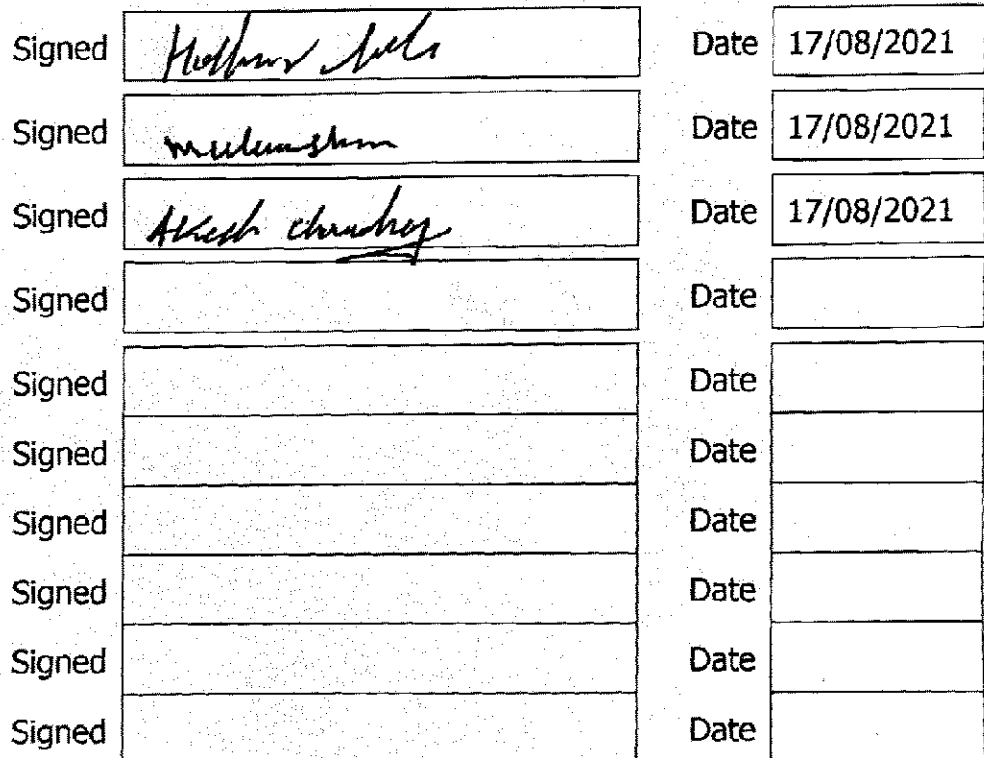 Signed Date 17/08/2021
Signed Date 17/08/2021
Signed Date 17/08/2021
Signed Date
Signed Date
Signed Date
Signed Date
Signed Date
Signed Date
Signed Date